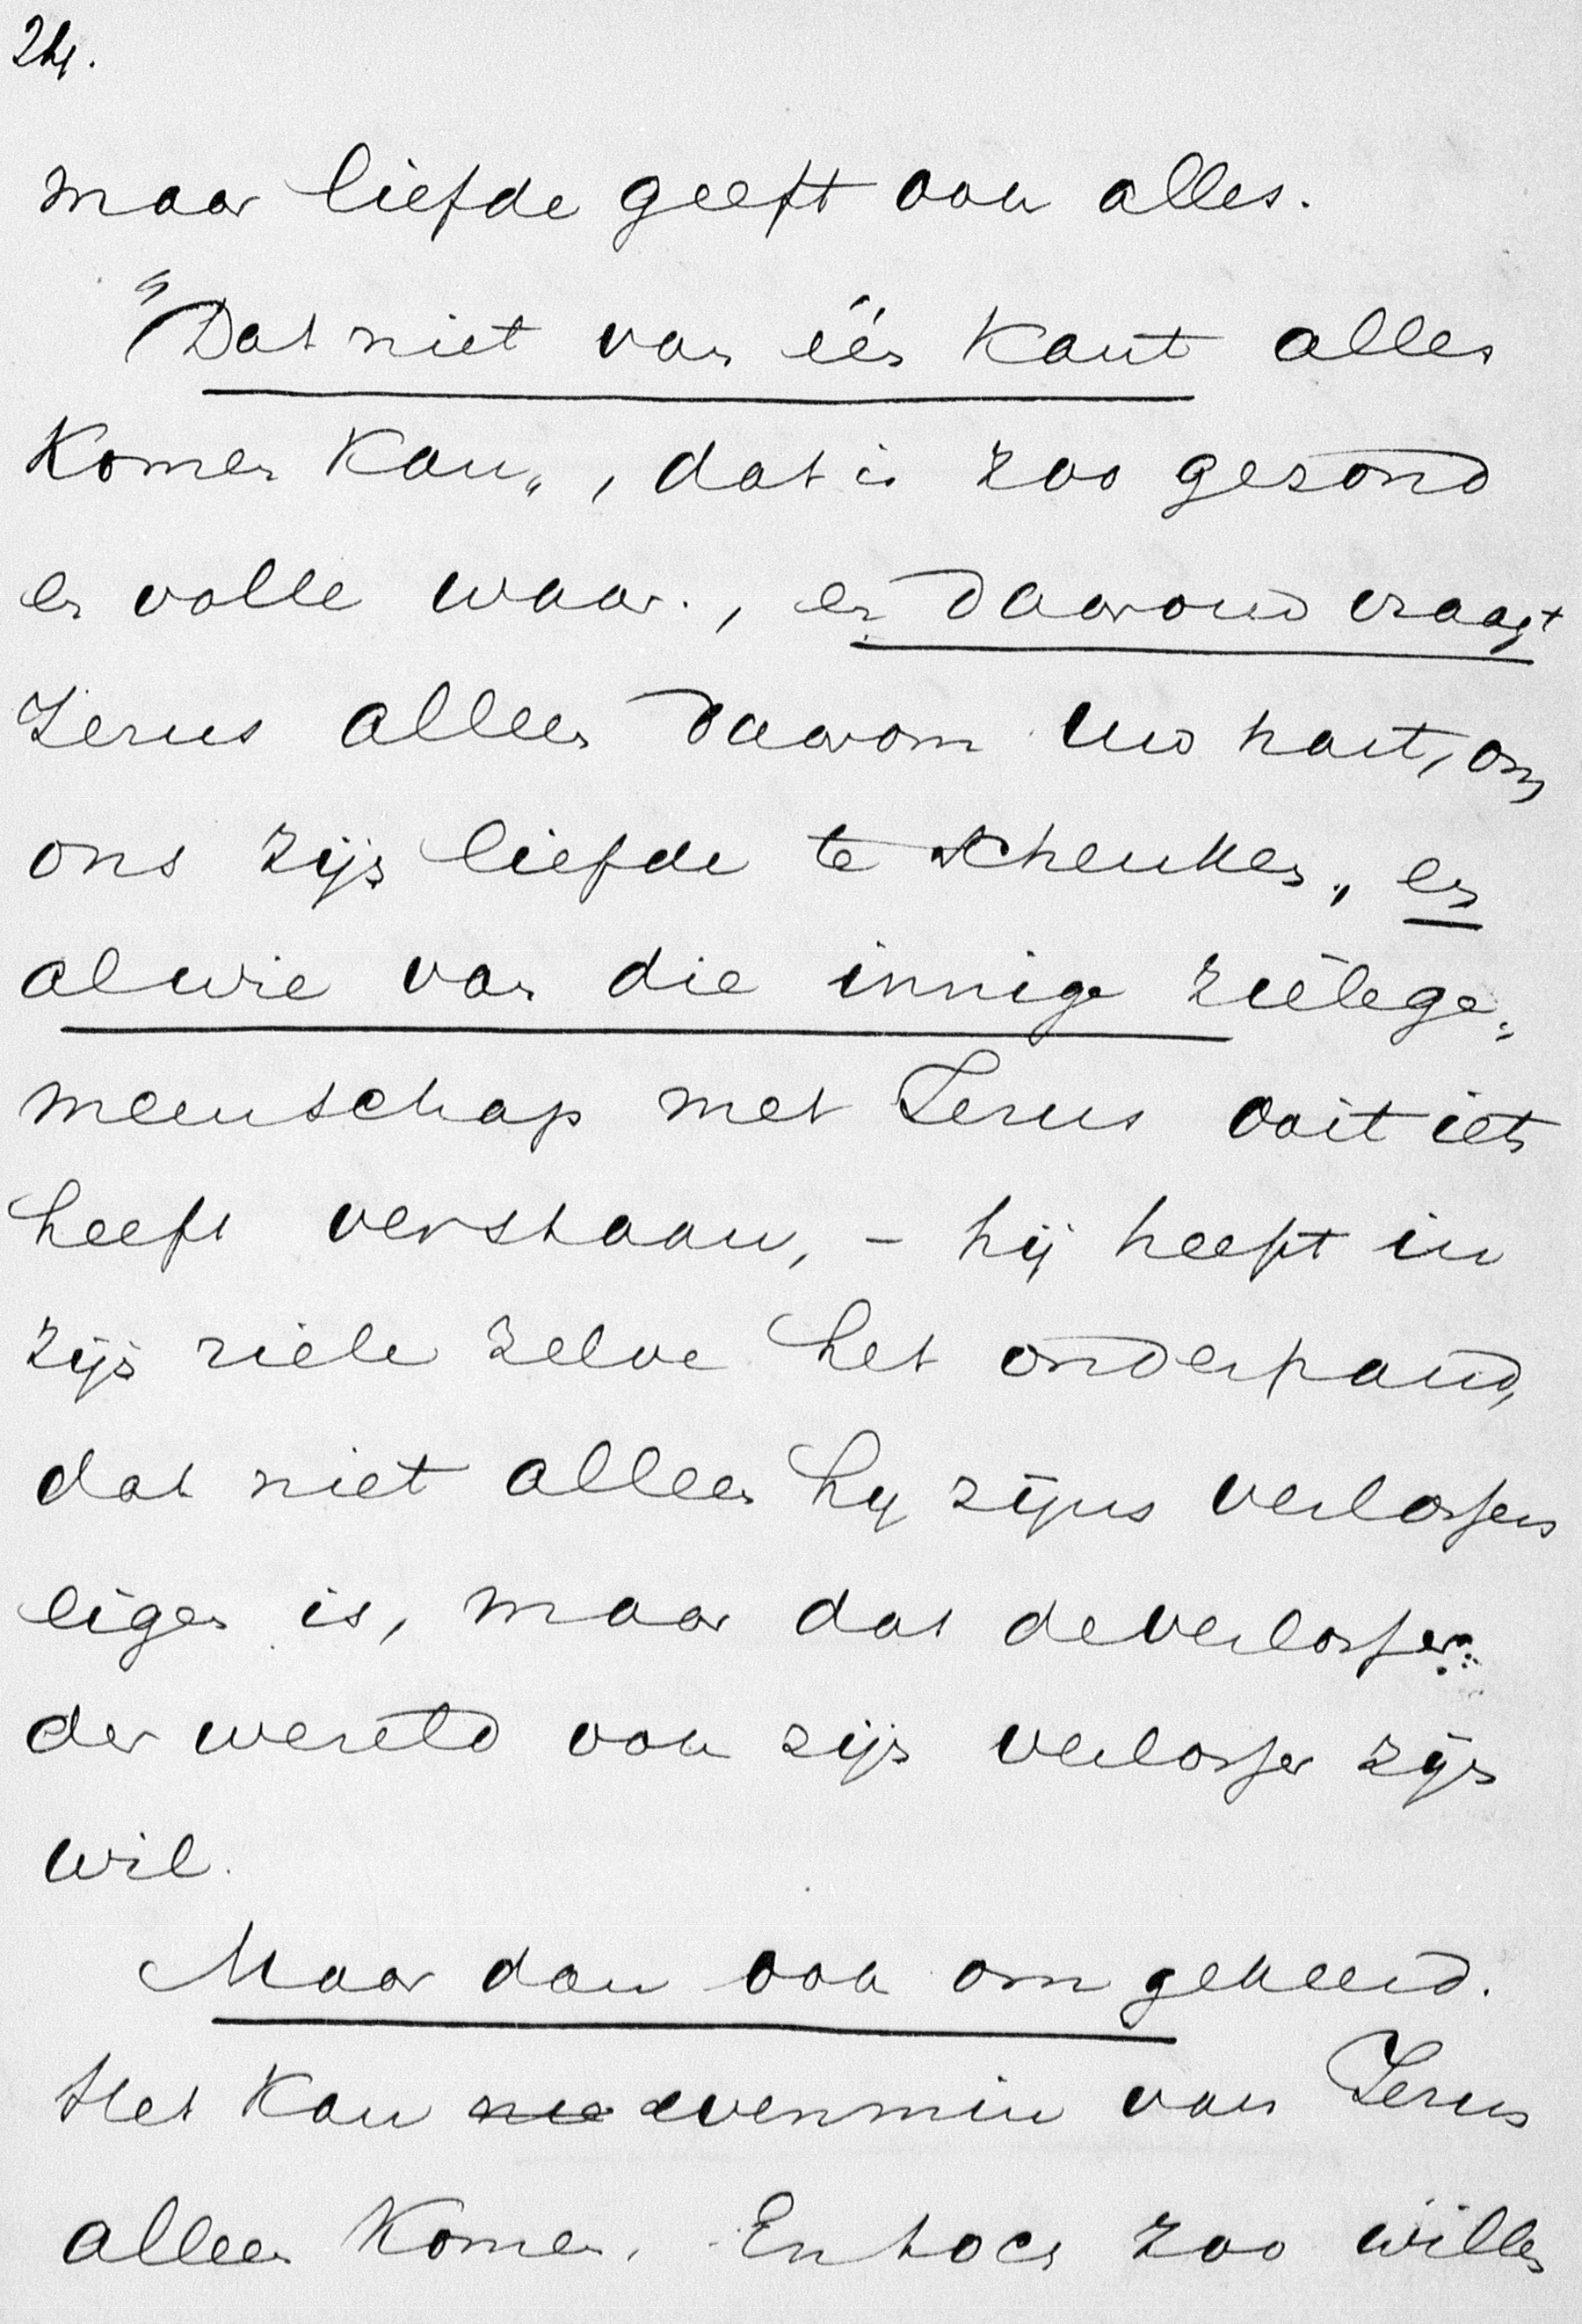 24.
maar liefde geeft ook alles.
"Dat niet van één kant alles
komen kan„, dat is zoo gezond
en volle waar., en daarom vraagt
Jezus alleen daarom uw hart, om
ons zijn liefde te schenken„ en
alwie van die innige zielege„
meenschap met Jezus ooit iets
heeft verstaan, - hij heeft in
zijn ziele zelve het onderpand,
dat niet alleen hij zijns verlossers
eigen is, maar dat de verlosser
der wereld ook zijn verlosser zijn
wil.
Maar dan ook omgekeerd.
Het kan nie evenmin van Jezus
alleen komen. En toch zoo willen